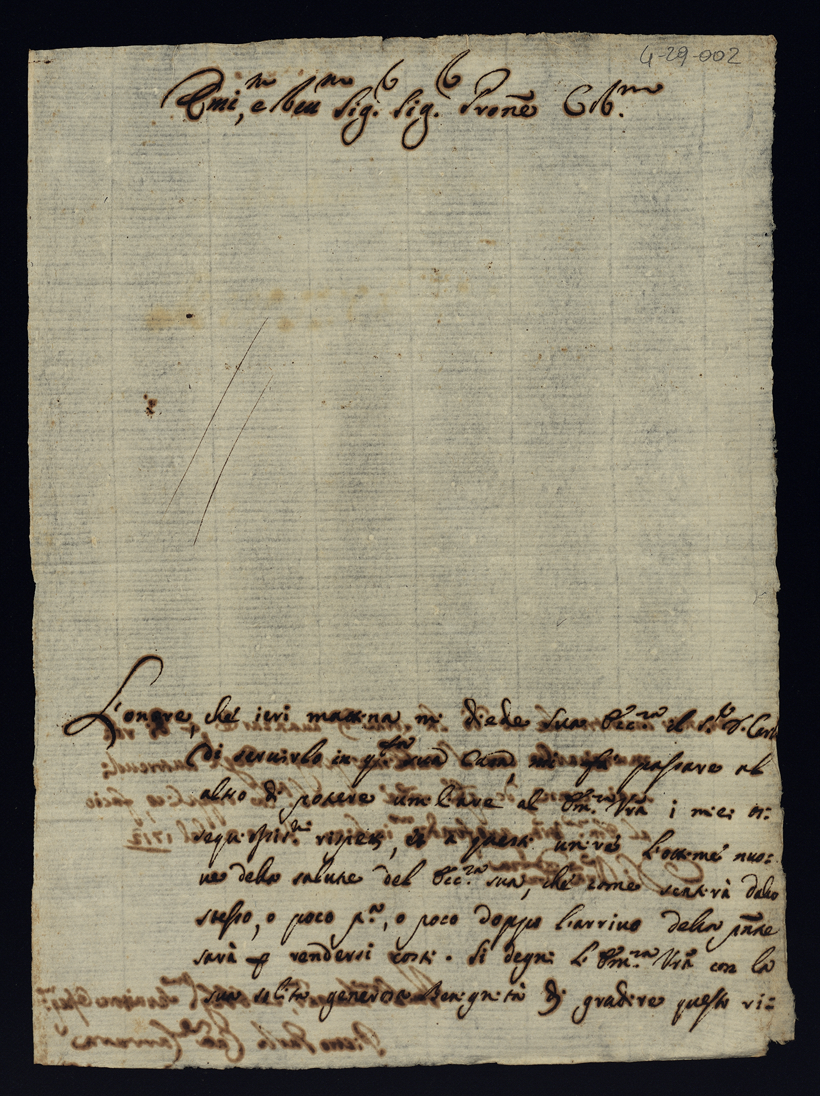 4-29-002
Emi.mo, e Rev.mo Sig.r Sig.r Prone Col.mo
L'onore, che ieri mattina mi diede Sua Ecc.za il S.r D.
di servirlo in q.sta sua Casa, mi fa passare al
altro di potere umiliare al Em.za Vra i miei os:
sequiosiss.mi rispetti, et a questi unire l'ottime nuo:
ve della salute del Ecc.za sua, che come sentirà dallo
stesso, o poco p.a, o poco doppo l'arrivo della pnte
sarà p rendersi costì. Si degni l'Em.za Vra con la
sua solita generosa benignità di gradire questo ri: